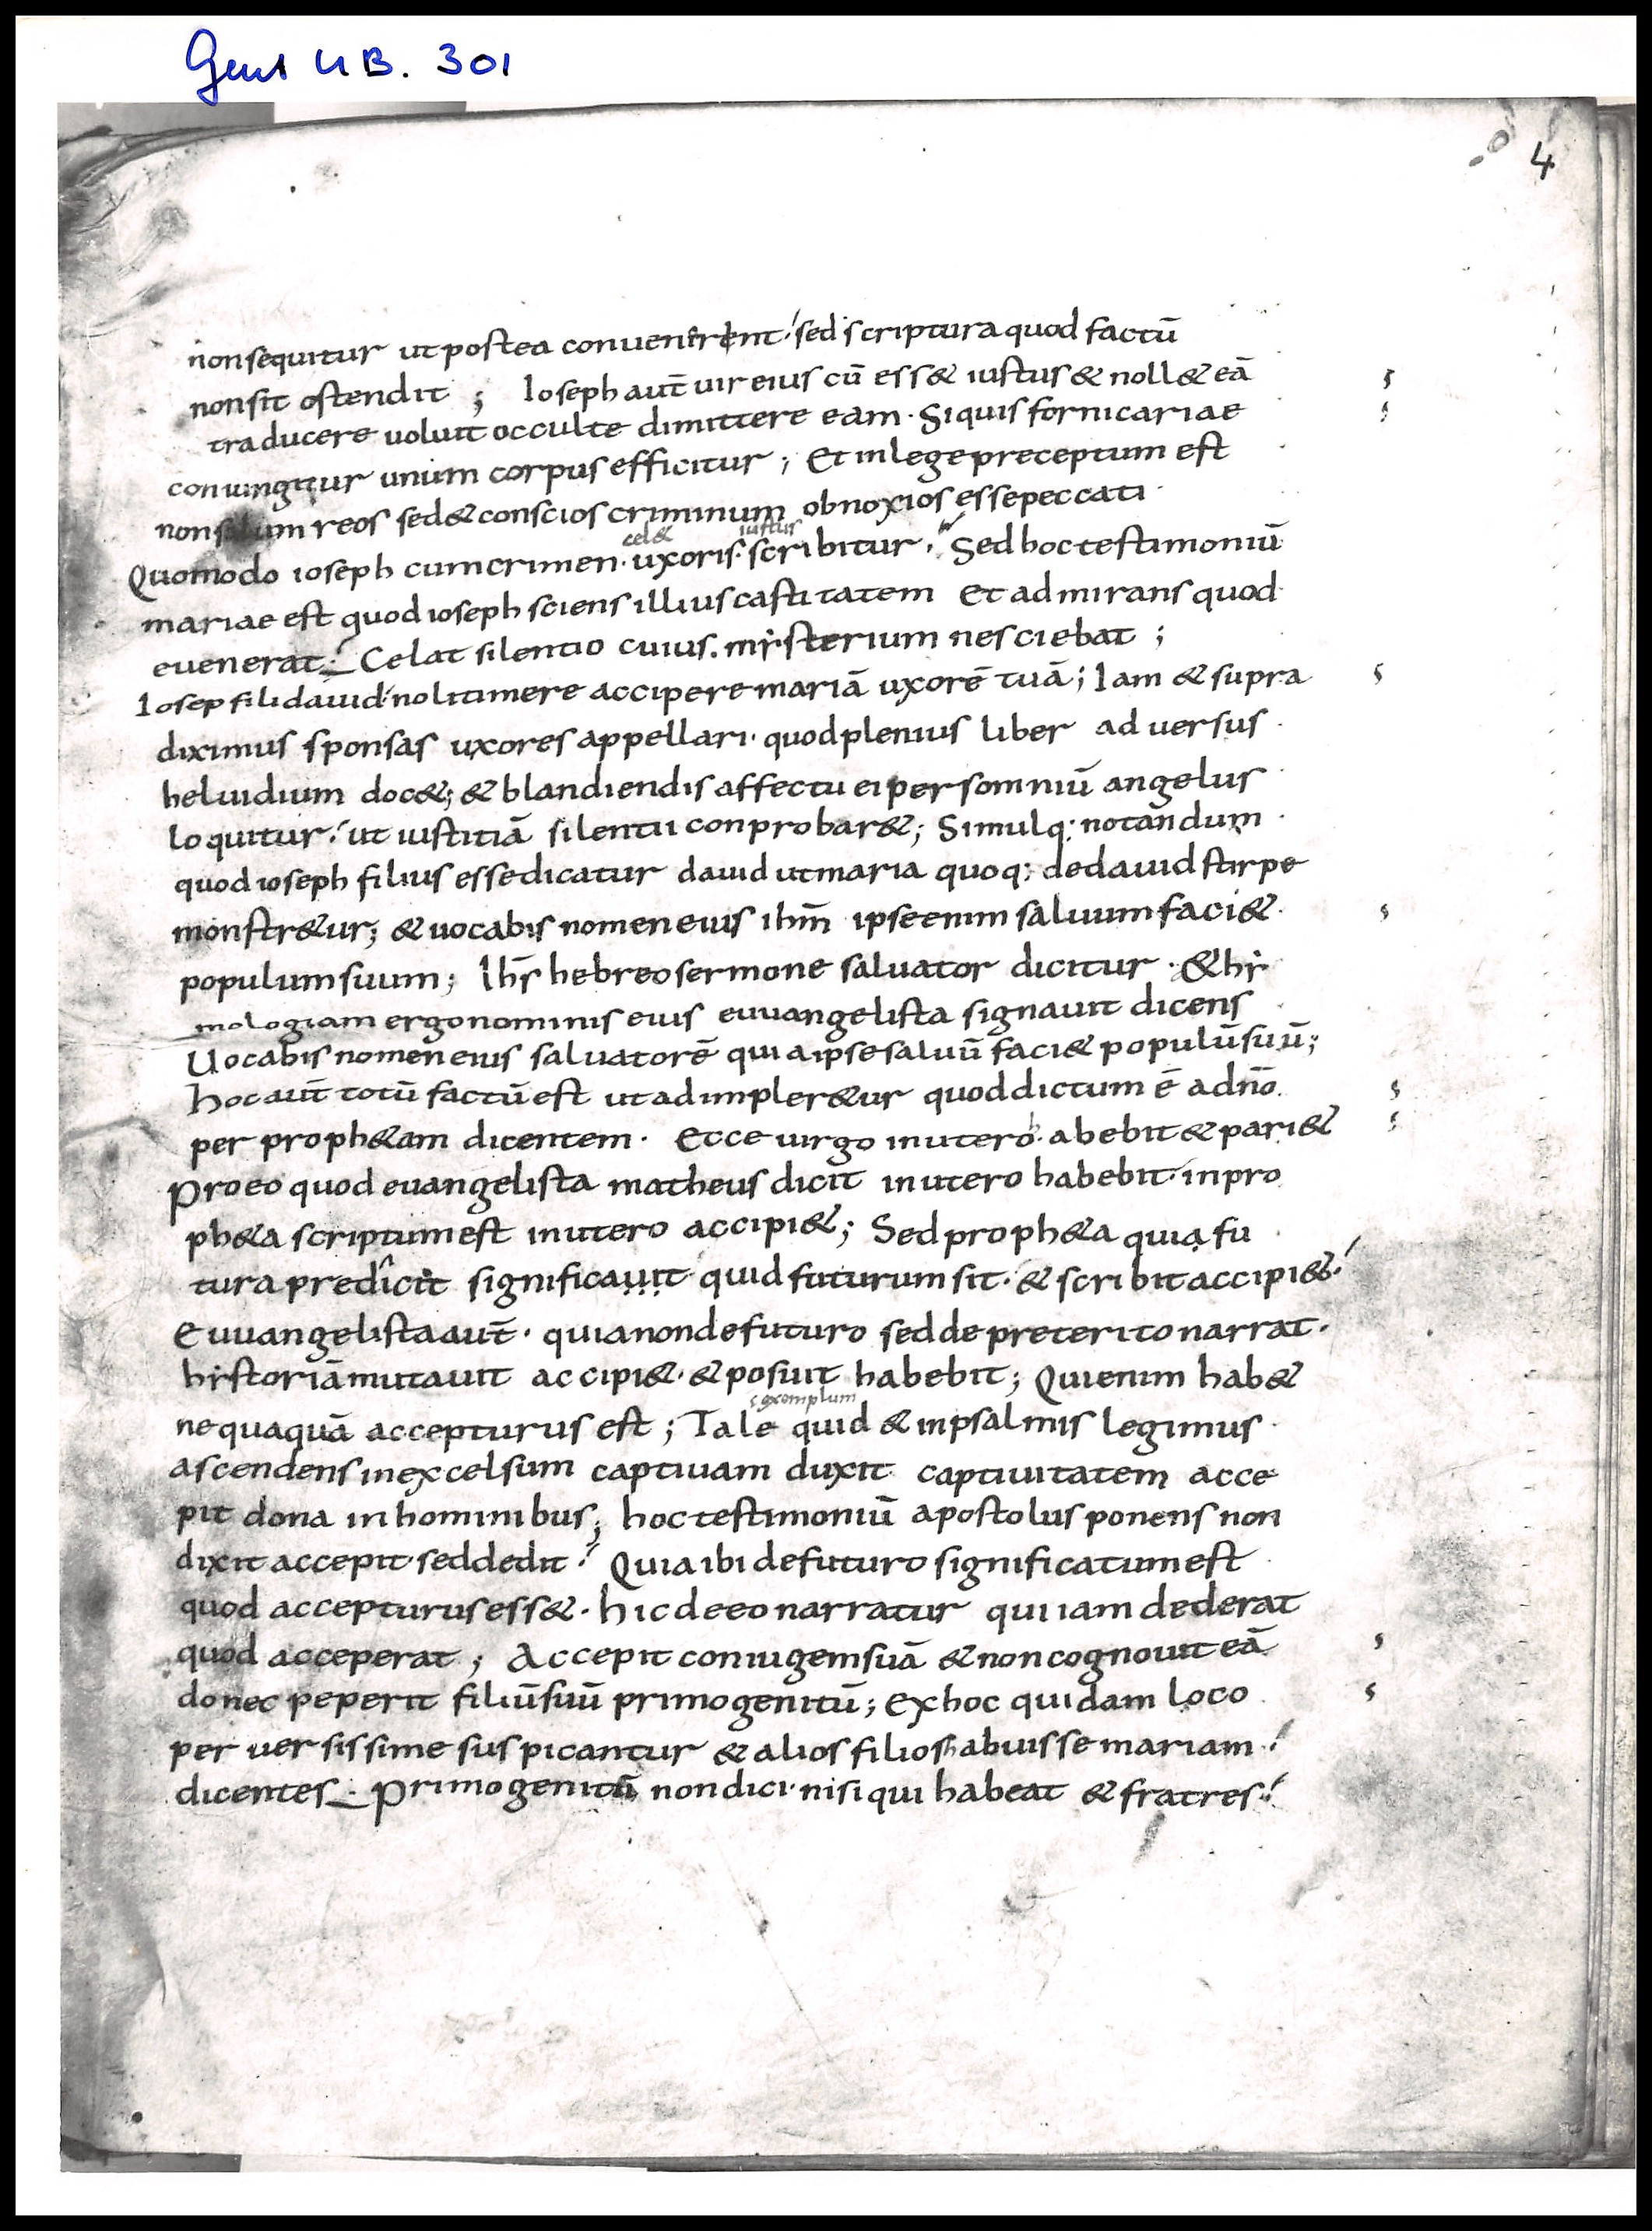 Gent UB. 301
4
non sequitur ut postea convenirent sed scriptura quod factū
non sit ostendit ; Ioseph aut̄ uir eius cū ess& iustus & noll& eā
traducere uoluit occulte dimittere eam · Si quis fornicariae
coniungitur unum corpus efficitur ; Et in lege preceptum est
non solum reos sed & conscios criminum obnoxios esse peccati ·
cel& iustus
Quomodo ioseph cum crimen · uxoris · scribitur · Sed hoc testimoniū
mariae est quod ioseph sciens illius castitatem et admirans quod
euenerat · Celat silentio cuius · mẏsterium nesciebat ;
Iosep fili dauid noli timere accipere mariā uxorē tuā ; Iam & supra
diximus sponsas uxores appellari · quod plenius liber aduersus
heluidium doc& ; & blandiendis affectu ei per somniū angelus
loquitur · ut iustitiā silentii conprobar& ; Simulq: notandum
quod ioseph filius esse dicatur dauid ut maria quoq; de dauid stirpe
monstr&ur ; & uocabis nomen eius ihm̄ ipse enim saluum faci&
populum suum ; Ih̄s hebreo sermone saluator dicitur · &hẏ
mologiam ergo nominis eius euuangelista signauit dicens
Uocabis nomen eius saluatorē quia ipse saluū faci& populū suū ;
hoc aut̄ totū factū est ut adimpler&ur quod dictum ē a dn̄o
per proph&am dicentem · Ecce uirgo in utero habebit & pari&
Pro eo quod euangelista matheus dicit in utero habebit · in pro
ph&a scriptum est in utero accipi& ; Sed proph&a quia fu
tura predicit significauit quid futurum sit · & scribit accipi& ·
Euuangelista aut̄ · quia non de futuro sed de preterito narrat ·
hẏstoriā mutauit accipi& · & posuit habebit ; Qui enim hab&
s exomplum
nequaquā accepturus est ; Tale quid & in psalmis legimus
ascendens in excelsum captiuam duxit captiuitatem acce
pit dona in hominibus ; hoc testimoniū apostolus ponens non
dixit accepit · sed dedit · Quia ibi de futuro significatum est
quod accepturus ess& · hic de eo narratur qui iam dederat
quod acceperat ; Accepit coniugem suā & non cognouit eā
donec peperit filiū suū primogenitū ; Ex hoc quidam loco
peruersissime suspicantur & alios filios habuisse mariam ·
dicentes · Primogenitū non dici · nisi qui habeat & fratres ·